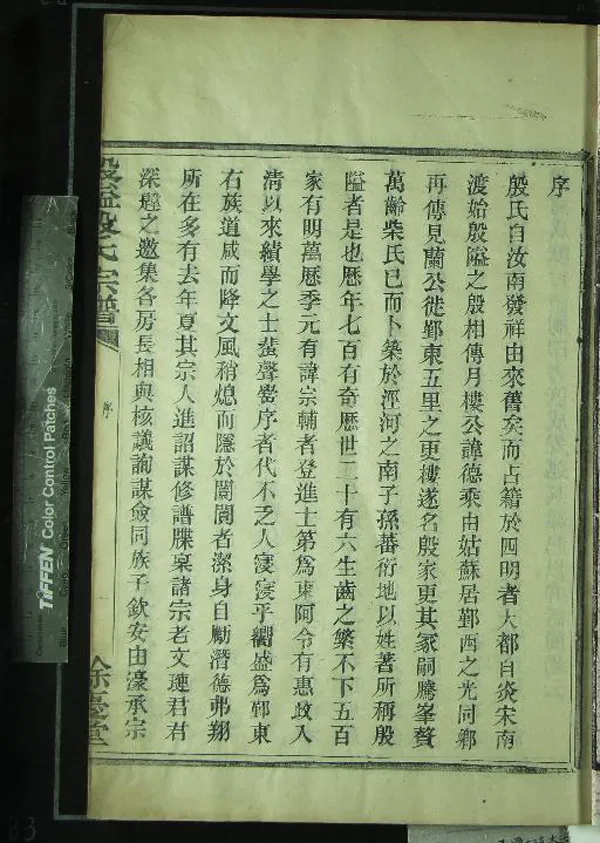 序
殷氏自汝南發祥由來舊矣而占籍於四明者大都自炎宋南
渡始殷隘之殷相傳月樓公諱德乘由姑蘇居鄞西之光同鄉
再傳見蘭公徙鄞東五里之更樓遂名殷家更其冢嗣騰峯贅
萬齡柴氏已而卜築於涇河之南子孫蕃衍地以姓著所稱殷
隘者是也歷年七百有奇歷世二十有六生齒之繁不下五百
家有明萬歷季元有諱宗輔者登進士第為東阿令有惠政入
清以來績學之士蜚聲黌序者代不乏人寖寖乎嚮盛為鄞東
右族道咸而降文風稍熄而隱於闤闠者潔身自勵潛德弗翔
所在多有去年夏其宗人進詔謀修譜牒稟諸宗老文璉君君
深韙之邀集各房長相與核議詢謀僉同族子欽安由濠承宗
殷隘殷氏宗譜
序
餘慶堂
TIFFEN Color Control Patches